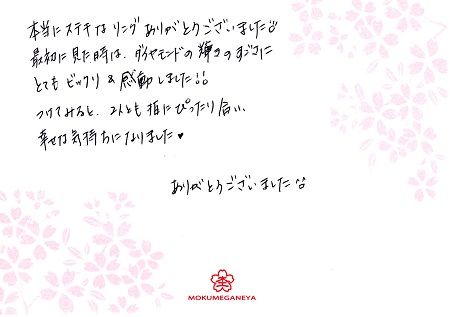 本当にステキなリングありがとうございました
最初に見た時は、ダイヤモンドの輝きのすごさに
とてもビックリ&感動しました!!
つけてみると、2人とも指にぴったり合い、
幸せな気持ちになりました♥
ありがとうございました
MOKUMEGANEYA